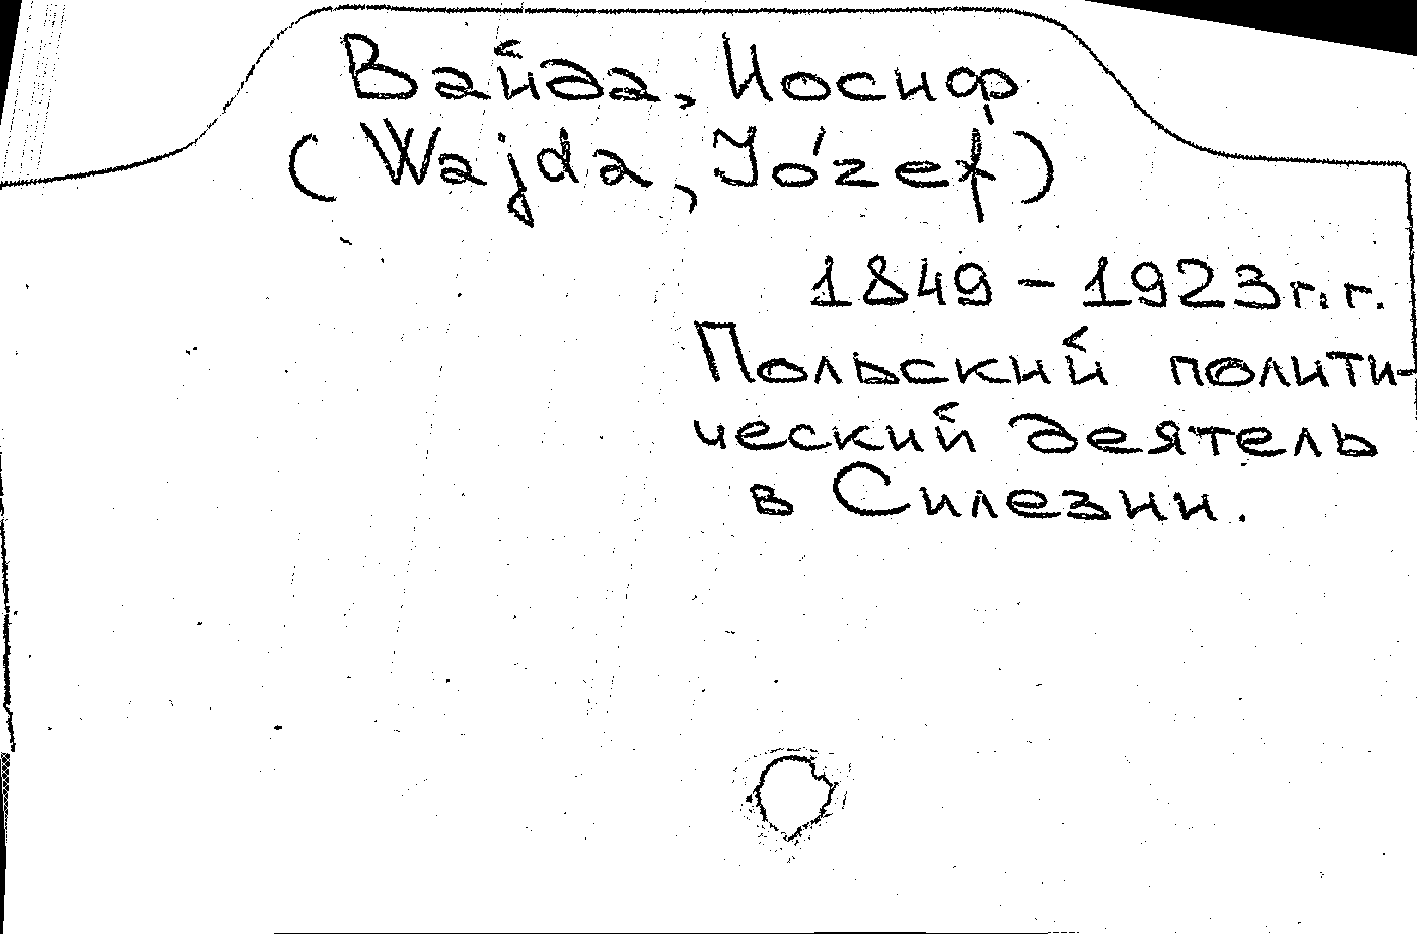 Вайда, Иосиф
(Wajda, Józef)
1849 – 1923 г.г.
Польский полити-
ческий деятель
в Силезии.